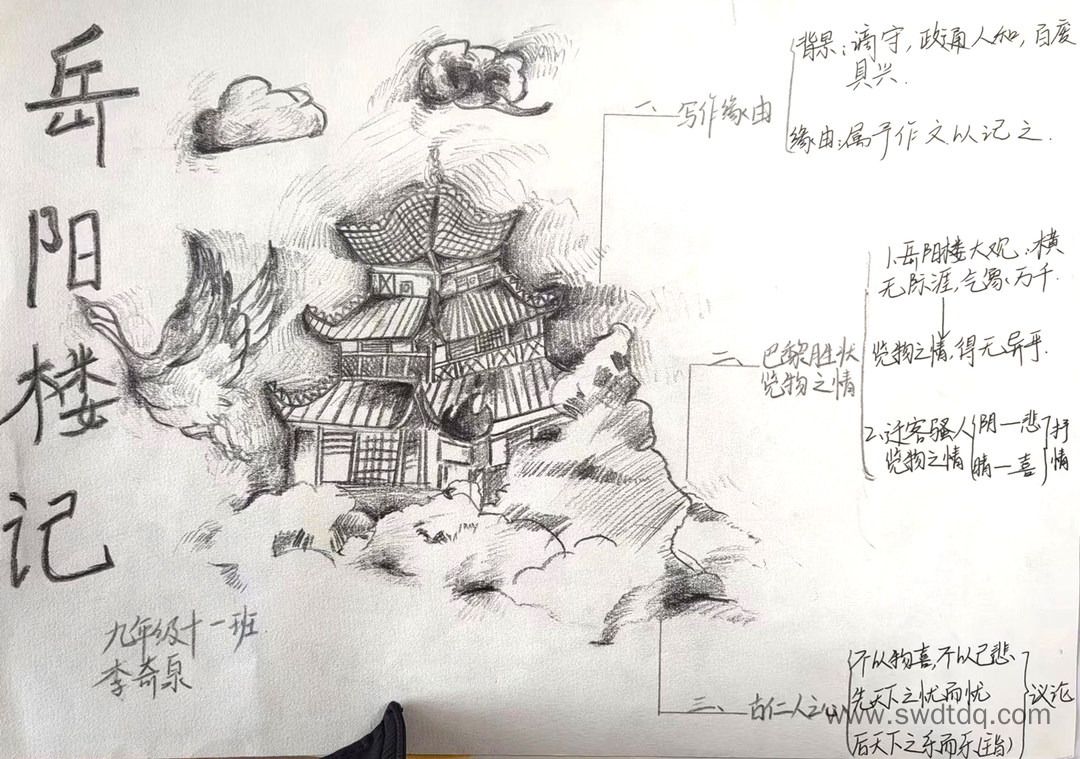 岳阳楼记
九年级十一班
李奇泉
一、写作缘由
背景:谪守,政通人和,百废
具兴.
缘由:属予作文以记之.
二、巴黎胜状
览物之情
1.岳阳楼大观:横
无际涯,气象万千.
览物之情,得无异乎.
2.迁客骚人
览物之情
阴—悲
晴—喜
抒情
三、古仁人之心
不以物喜,不以己悲
先天下之忧而忧
后天下之乐而乐(主旨)
议论
www.swdtdq.com